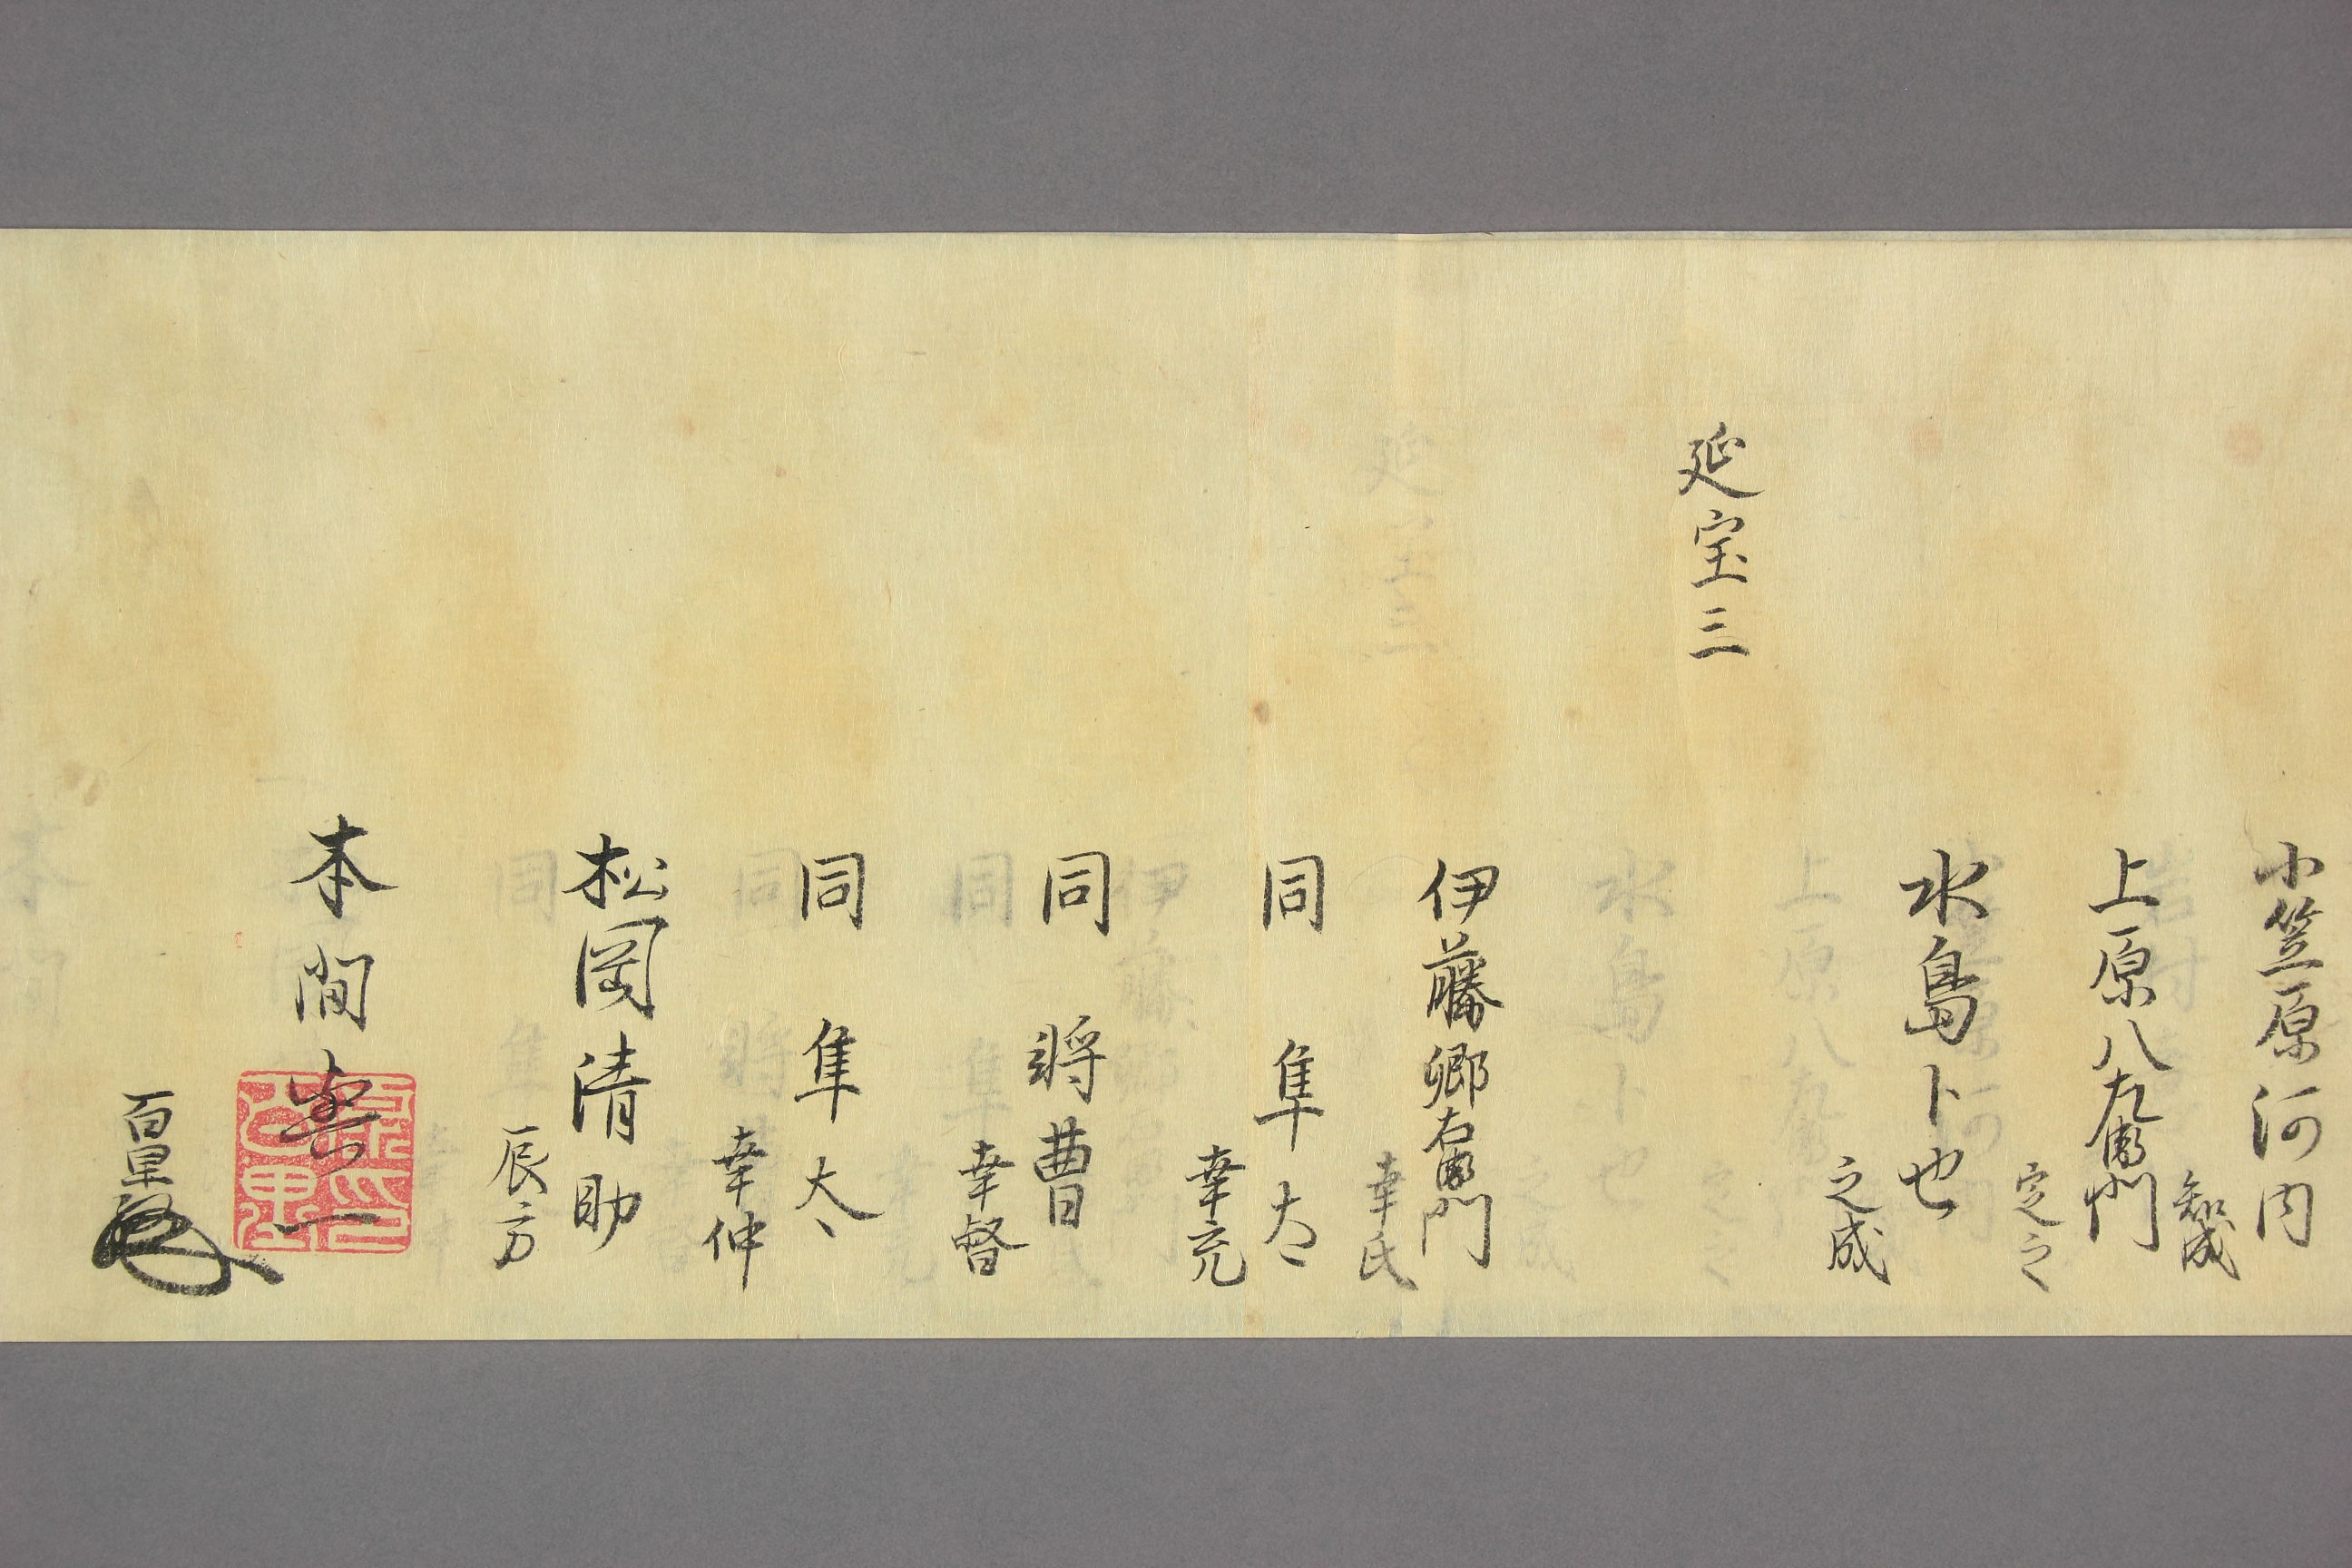 小笠原河内
智成
上原八左衛門
定之
水島卜也
之成
延宝三
伊藤郷右衛門
幸氏
同 隼太
幸充
同 将曹
幸督
同 隼太
幸仲
松岡清助
辰方
本間
百里